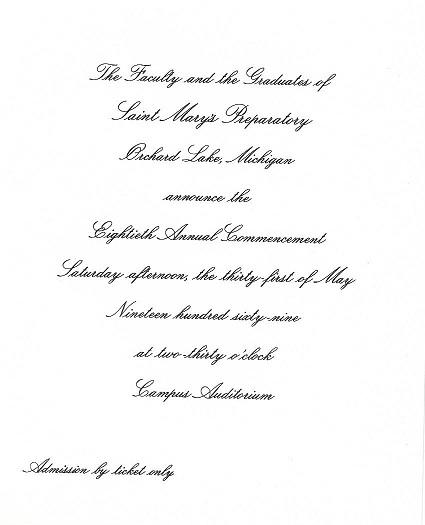 The Faculty and the Graduates of
Saint Mary's Preparatory
Orchard Lake, Michigan
announce the
Eightieth Annual Commencement
Saturday afternoon, the thirty-first of May
Nineteen hundred sixty-nine
at two-thirty o'clock
Campus Auditorium
Admission by ticket only